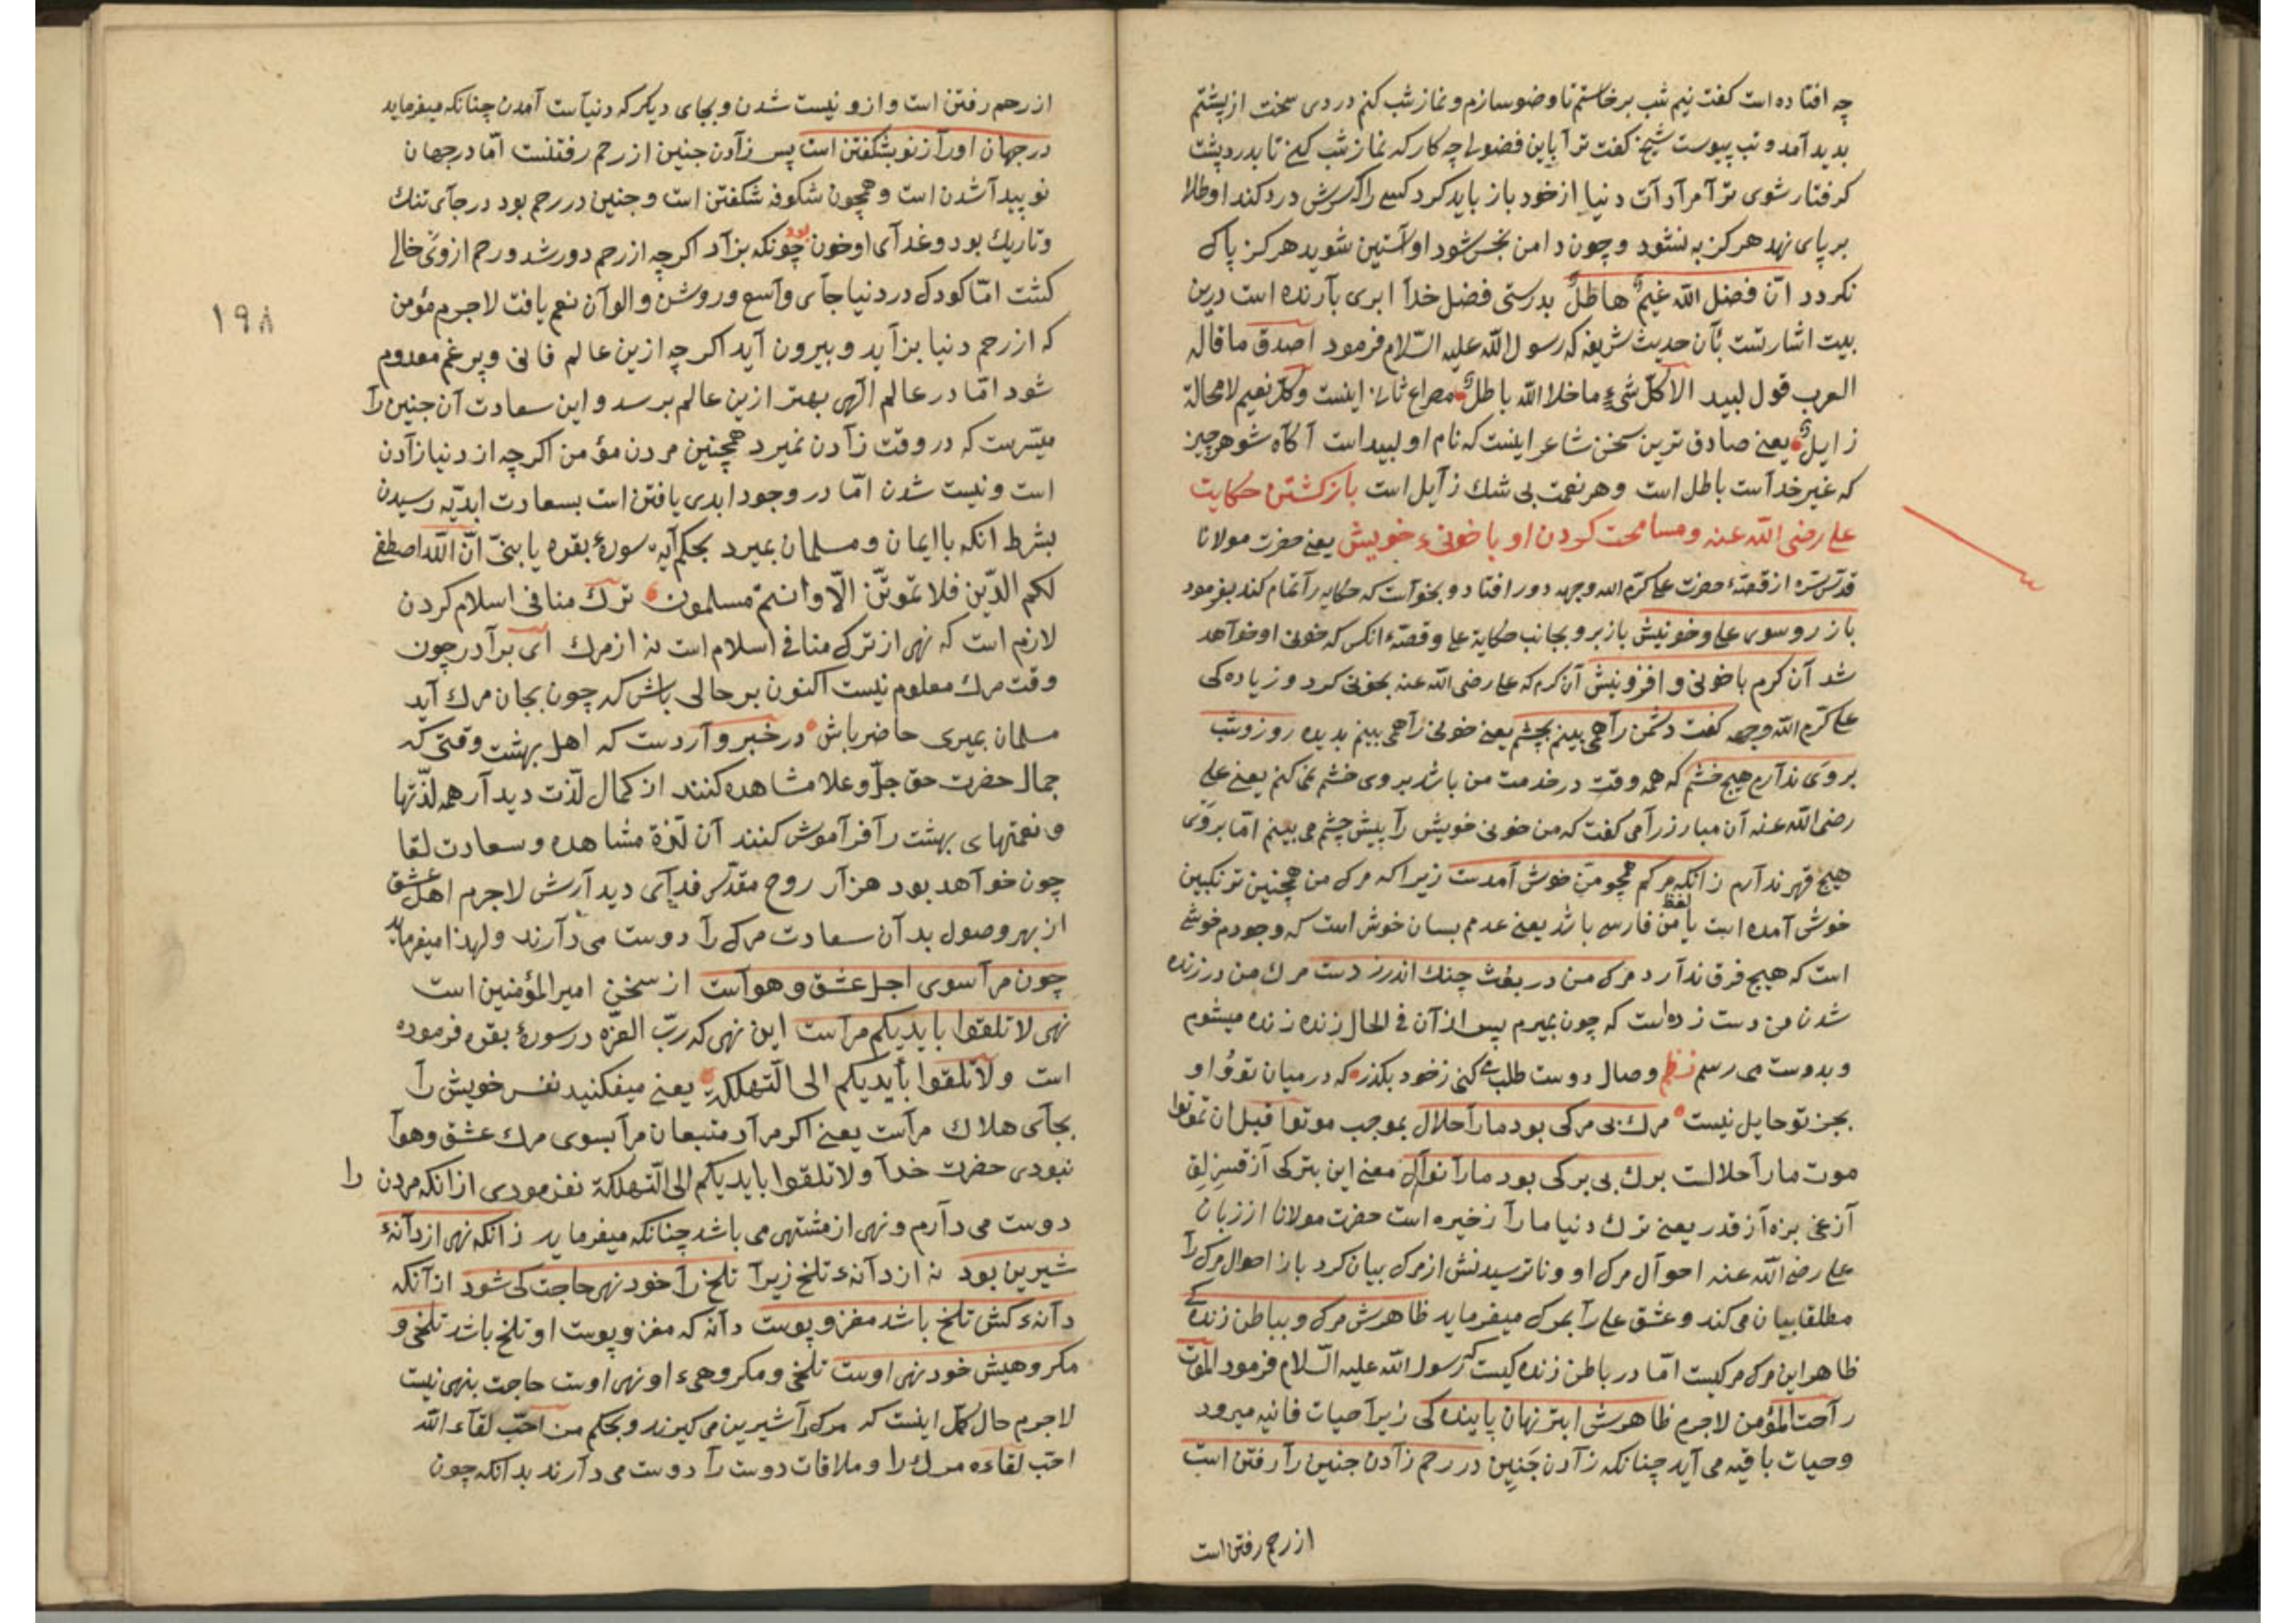 چه افتاده است كفت نیم شب برخاستم تا وضو سازم و نماز شب كنم دردی سخت از پشتم
بدید آمد و تب پیوست شیخ كفت ترا باین فضولی چه كار كه نماز شب كنی تا بدرد پشت
كرفتار شوی ترا مرادات دنیا از خود باز باید كرد كسی را كه سرش درد كند او طلا
بر پای نهد هركز به نشود و چون دامن نجس شود او آستین شوید هركز پاك
نكردد انّ فضل الله غیمٌ هاطلٌ بدرستی فضل خدا ابری بارنده است درین
بیت اشارتست بآن حدیث شریفه كه رسول الله علیه السّلام فرمود اصدق ما قاله
العرب قول لبید الا كلّ شیءٍ ما خلا الله باطلٌ مصراع ثانی اینست وكلّ نعیم لا محالة
زایلٌ یعنی صادق ترین سخن شاعر اینست كه نام او لبید است آكاه شو هر چیز
كه غیر خداست باطل است وهر نعمت بی شك زایل است بازكشتن حكایت
علی رضی الله عنه ومسامحت كردن او با خونیء خویش یعنی حضرت مولانا
قدّس سّره از قصّهٔ حضرت علی كرّم الله وجهه دور افتاد و بخواست كه حكایه را تمام كند بفرمود
باز رو سوی علی و خونیش باز برو بجانب حكایة علی وقصّهٔ انكس كه خونی او خواهد
شد آن كرم با خونی و افزونیش آن كرم كه علی رضی الله عنه بخونی كرد و زیاده كی
علی كرّم الله وجهه كفت دشمن را همی بینم بچشم یعنی خونی را همی بینم بدیده روز وشب
بر وی ندارم هیچ خشم كه همه وقت در خدمت من باشد بر وی خشم نمی كنم یعنی علی
رضی الله عنه آن مبارز را می كفت كه من خونی خویش را پیش چشم می بینم امّا بر وی
هیچ قهر ندارم زانكه مركم همچو من خوش آمدست زیرا كه مرك من همچنین ترنكبین
خوش آمده است یا لفظ من فارسی باشد یعنی عدمم بسان خوش است كه وجودم خوشی
است كه هیچ فرق ندارد مرك من در بعث چنك اندر زدست مرك من در زنده
شدن من دست زده است كه چون بمیرم پس از آن فی الحال زنده زنده میشوم
وبدوست می رسم نظم وصال دوست طلب می كنی ز خود بكذر كه در میان تو و او
بجز تو حایل نیست مرك بی مركی بود ما را حلال بموجب موتوا قبل ان تموتوا
موت ما را حلالست برك بی بركی بود ما را نوال معنی این بتركی آزقسزلق
آزغی بزه آزقدر یعنی ترك دنیا ما را ذخیره است حضرت مولانا از زبان
علی رضی الله عنه احوال مرك او و نا ترسیدنش از مرك بیان كرد باز احوال مرك را
مطلقا بیان می كند وعشق علی را بمرك میفرماید ظاهرش مرك و بباطن زنده كی
ظاهر این مرك مركیست امّا در باطن زنده كیست كه رسول الله علیه السّلام فرمود الموت
راحت المؤمن لاجرم ظاهرش ابتر نهان پاینده كی زیرا حیات فانیه میرود
وحیات باقیه می آید چنانكه زادن جنین در رحم زادن جنین را رفتن است
از رحم رفتن است
از رحم رفتن است و ازو نیست شدن و بجای دیكر كه دنیاست آمدن چنانكه میفرماید
در جهان او را از نو بشكفتن است پس زادن جنین از رحم رفتنست امّا در جهان
نو پیدا شدن است و همچون شكوفه شكفتن است و جنین در رحم بود در جای تنك
وتاریك بود و غدای او خون بود چونكه بزاد اكر چه از رحم دور شد و رحم ازوی خالی
كشت امّا كودك در دنیا جای واسع و روشن و الوان نعم یافت لاجرم مؤمن
كه از رحم دنیا بزاید و بیرون آید اكر چه ازین عالم فانی و پر غم معدوم
شود امّا در عالم الهی بهتر ازین عالم برسد و این سعادت آن جنین را
میسّرست كه در وقت زادن نمیرد همچنین مردن مؤمن اكر چه از دنیا زادن
است و نیست شدن امّا در وجود ابدی یافتن است بسعادت ابدیّه رسیدن
بشرط انكه با ایمان و مسلمان بمیرد بحكم آیه سورهٔ بقره یا بنیّ انّ الله اصطفی
لكم الدّین فلا تموتنّ الّا وانتم مسلمون ترك منافی اسلام كردن
لازم است كه نهی از ترك منافی اسلام است نه از مرك ای برادر چون
وقت مرك معلوم نیست اكنون بر حالی باش كه چون بجان مرك آید
مسلمان بمیری حاضر باش در خبر واردست كه اهل بهشت وقتی كه
جمال حضرت حق جلّ و علا مشاهده كنند از كمال لذّت دیدار همه لذّتها
ونعمتهای بهشت را فراموش كنند آن لذّة مشاهده و سعادت لقا
چون خواهد بود هزار روح مقدّس فدای دیدارش لاجرم اهل عشق
از بهر وصول بدان سعادت مرك را دوست می دارند ولهذا میفرماید
چون مرا سوی اجل عشق وهواست از سخن امیر المؤمنین است
نهی لا تلقوا بایدیكم مراست این نهی كه ربّ العزّه در سورهٔ بقره فرموده
است ولا تلقوا بأیدیكم الی الّتهلكة یعنی میفكنید نفس خویش را
بجای هلاك مراست یعنی اكر مراد متبعان مرا بسوی مرك عشق وهوا
نبودی حضرت خدا ولا تلقوا بایدیكم الی الّتهلكة نفرمودی از انكه مردن را
دوست می دارم و نهی از مشتهی می باشد چنانكه میفرماید زانكه نهی از دانهٔ
شیرین بود نه از دانهء تلخ زیرا تلخ را خود نهی حاجت كی شود از آنكه
دانهء كش تلخ باشد مغز و پوست دانه كه مغز و پوست او تلخ باشد تلخی و
مكروهیش خود نهی اوست تلخی و مكروهیء او نهی اوست حاجت بنهی نیست
لاجرم حال كمّل اینست كه مرك را شیرین می كیرند و بحكم من احبّ لقآء الله
احبّ لقاءه مرك را و ملاقات دوست را دوست می دارند بدانكه چون
١٩٨